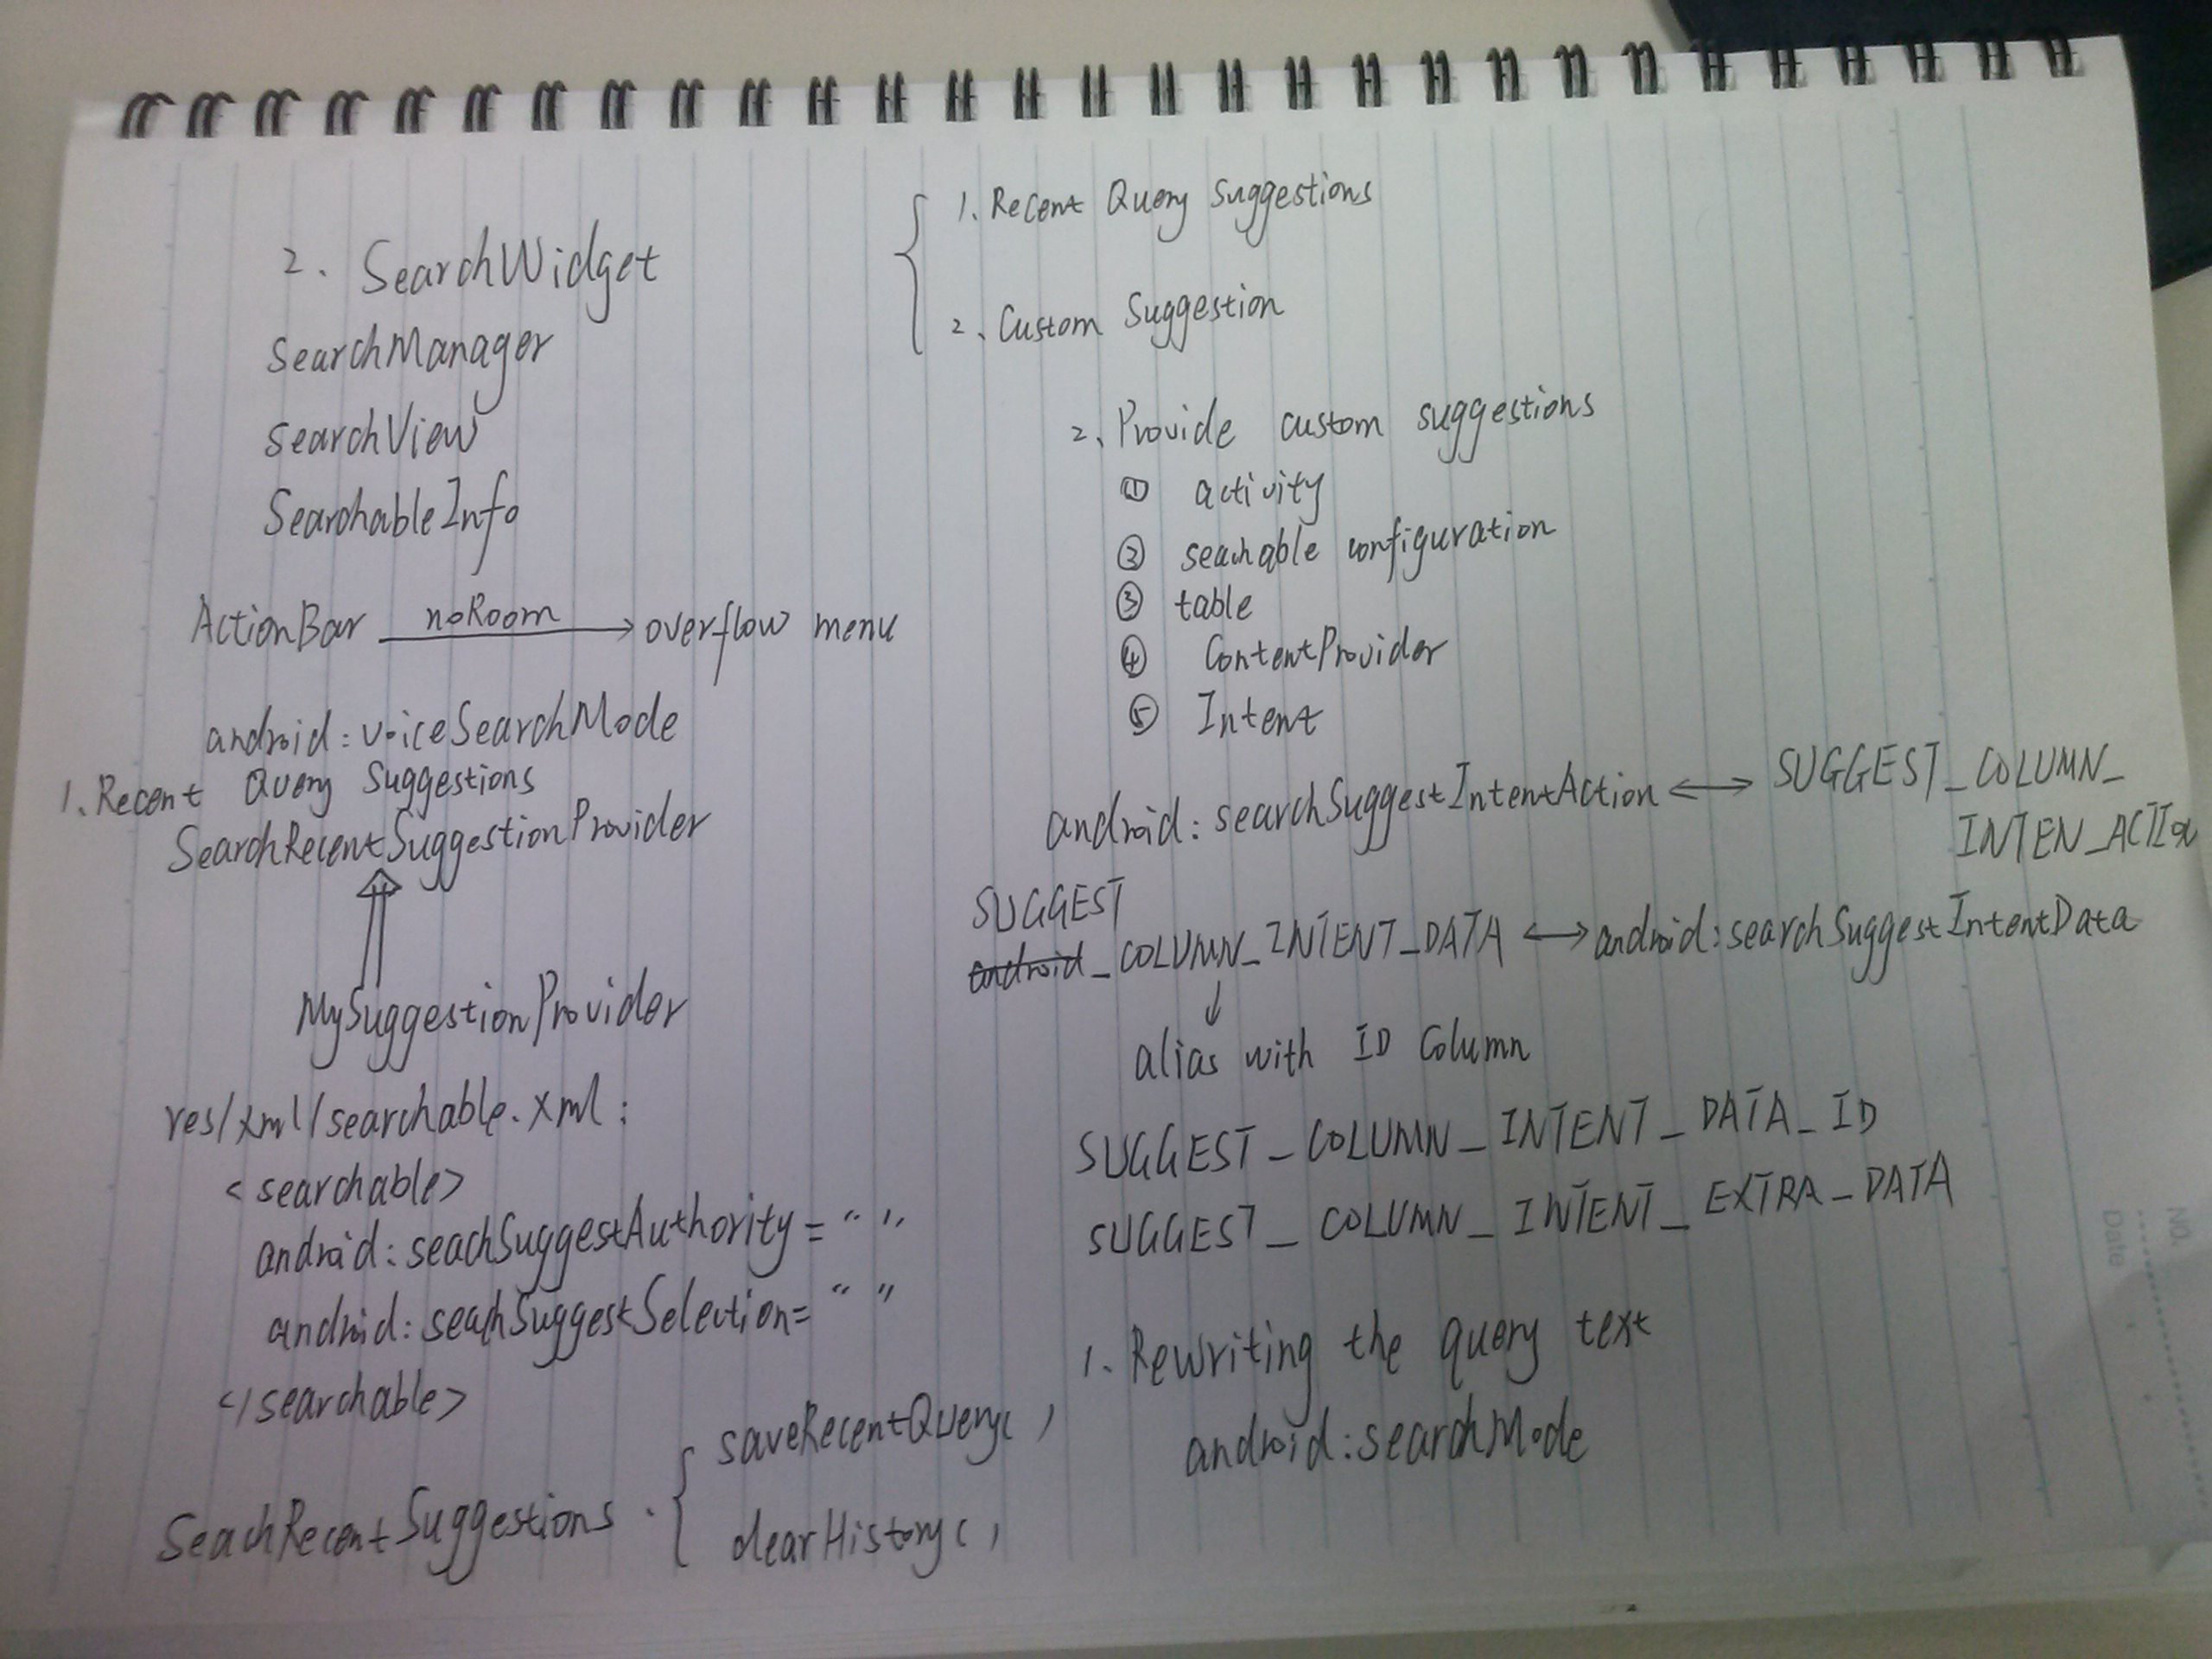 2. SearchWidget
SearchManager
SearchView
SearchableInfo
ActionBar noRoom → overflow menu
android:voiceSearchMode
1. Recent Query Suggestions
SearchRecentSuggestionProvider
MySuggestionProvider
res/xml/searchable.xml:
<searchable>
android:seachSuggestAuthority=" "
android:seachSuggestSelection=" "
</searchable>
SeachRecentSuggestions . {
saveRecentQuery( )
clearHistory( )
1. Recent Query Suggestions
2. Custom Suggestion
2. Provide custom suggestions
① activity
② seachable configuration
③ table
④ ContentProvider
⑤ Intent
android:searchSuggestIntentAction ↔ SUGGEST_COLUMN_
INTEN_ACTION
SUGGEST
android_COLUMN_INTENT_DATA ↔ android:searchSuggestIntentData
↓
alias with ID Column
SUGGEST_COLUMN_INTENT_DATA_ID
SUGGEST_COLUMN_INTENT_EXTRA_DATA
1. Rewriting the query text
android:searchMode
No.
Date